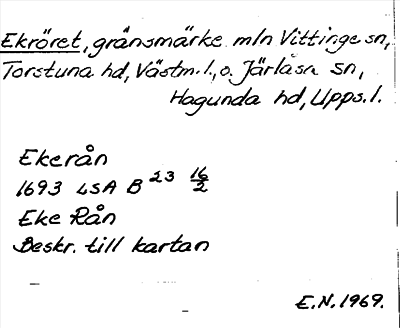 Ekröret, gränsmärke mln Vittinge sn,
Torstuna hd, Västm. l., o. Järlåsa sn,
Hagunda hd, Upps. l.
Ekerån
1693 LSA B 23 16/2
Eke Rån
Beskr. till kartan
E.N. 1969.